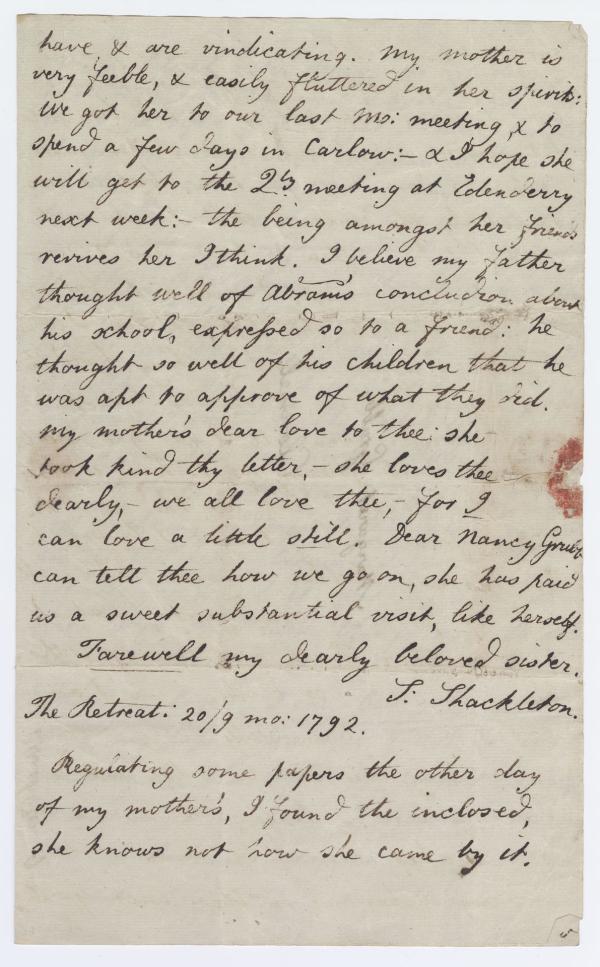 have & are vindicating. My mother is
very feeble, & easily fluttered in her spirits:
We got her to our last mo: meeting, & to
spend a few days in Carlow:- & I hope she
will get to the Qly meeting at Edenderry
next week:- the being amongst her friends
revives her I think. I believe my father
thought well of Abram's concludion about
his school, expressed so to a friend: he
thought so well of his children that he
was apt to approve of what they did.
My mother's dear love to thee: she
took kind thy letter,- she loves thee
dearly,- we all love thee,- for I
can love a little still. Dear Nancy Grubb
can tell thee how we go on, she has paid
us a sweet substantial visit, like herself.
Farewell my dearly beloved sister.
S: Shackleton.
The Retreat: 20/9 mo: 1792.
Regulating some papers the other day
of my mother's, I found the inclosed,
she knows not how she came by it.